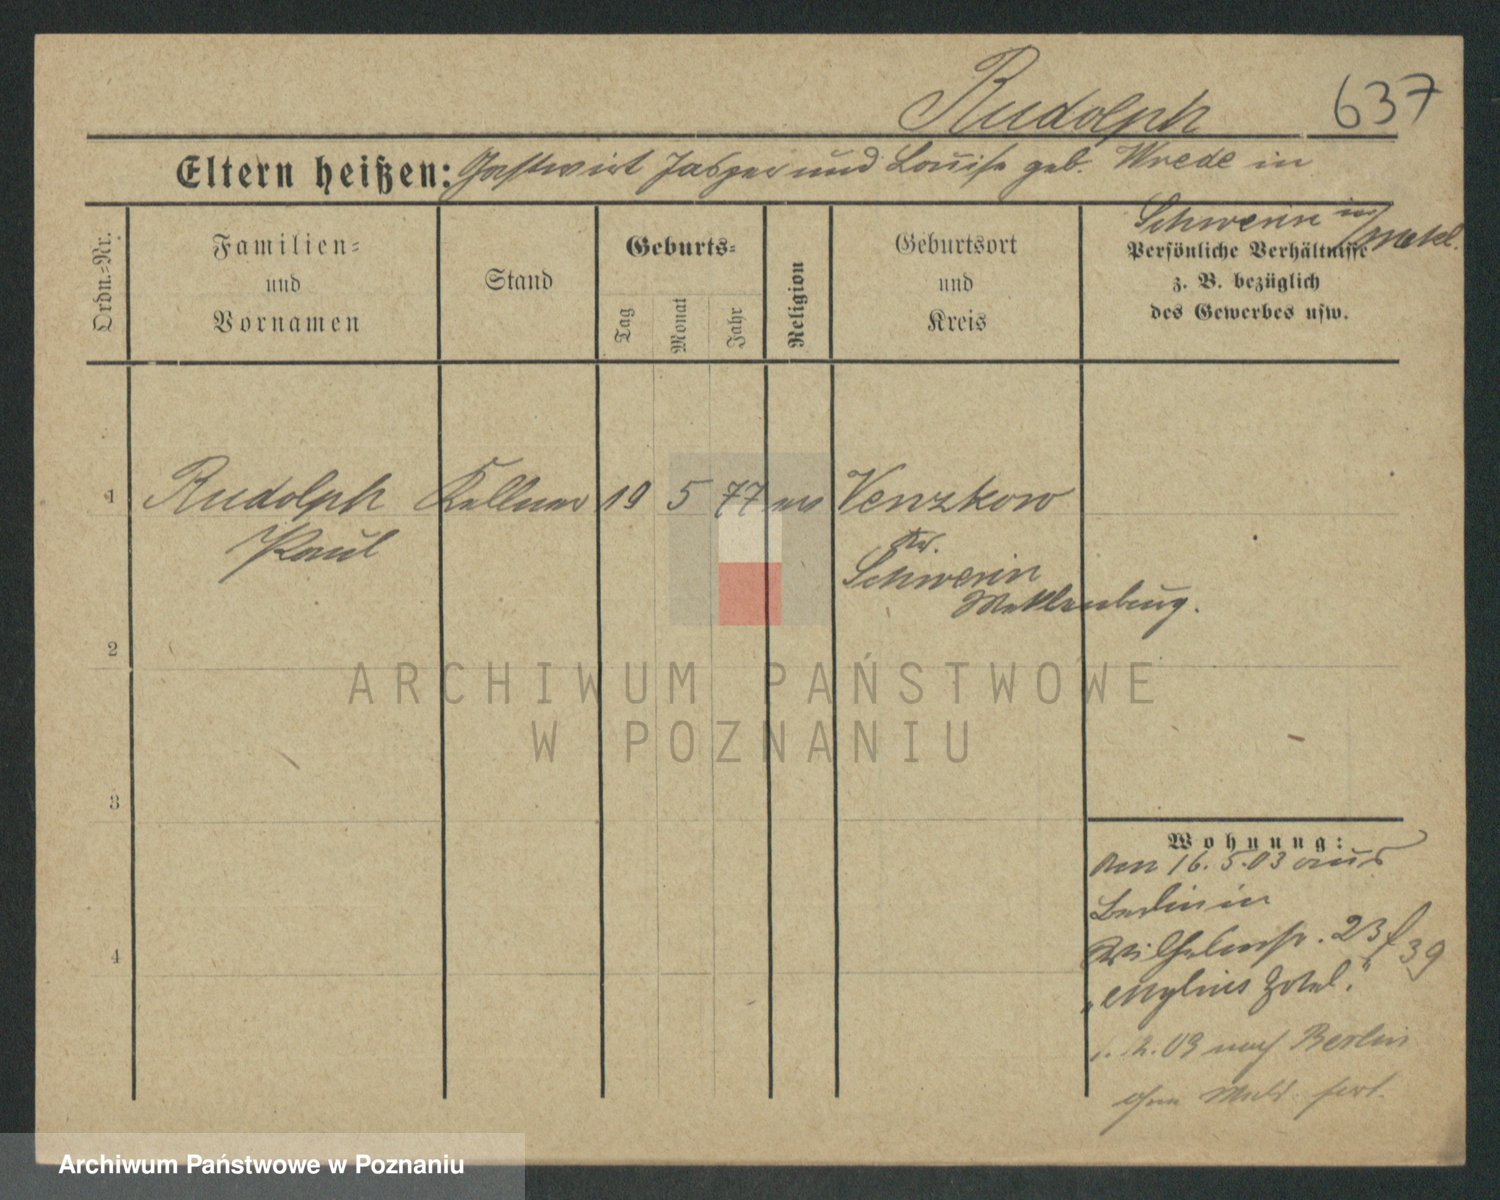 Rudolph 637
Eltern heißen: Gastwirt Jasper und Louise geb. Wrede in
Schwerin in/Mekl.
Ordn.-Nr.
Familien-
und
Vornamen
Stand
Geburts-
Tag
Monat
Jahr
Religion
Geburtsort
und
Kreis
Persönliche Verhältnisse
z. B. bezüglich
des Gewerbes usw.
1 Rudolph Kellner 19 5 77 ev Venzkow
Paul
Kr.
Schwerin
Meklenburg.
2
3
4
Wohnung:
Am 16.5.03 aus
Berlin in
Wilhelmstr. 23 f 39
„Mylius Hotel.“
2. 09 nach Berlin
ohne Meld. fort.
ARCHIWUM PAŃSTWOWE
W POZNANIU
Archiwum Państwowe w Poznaniu